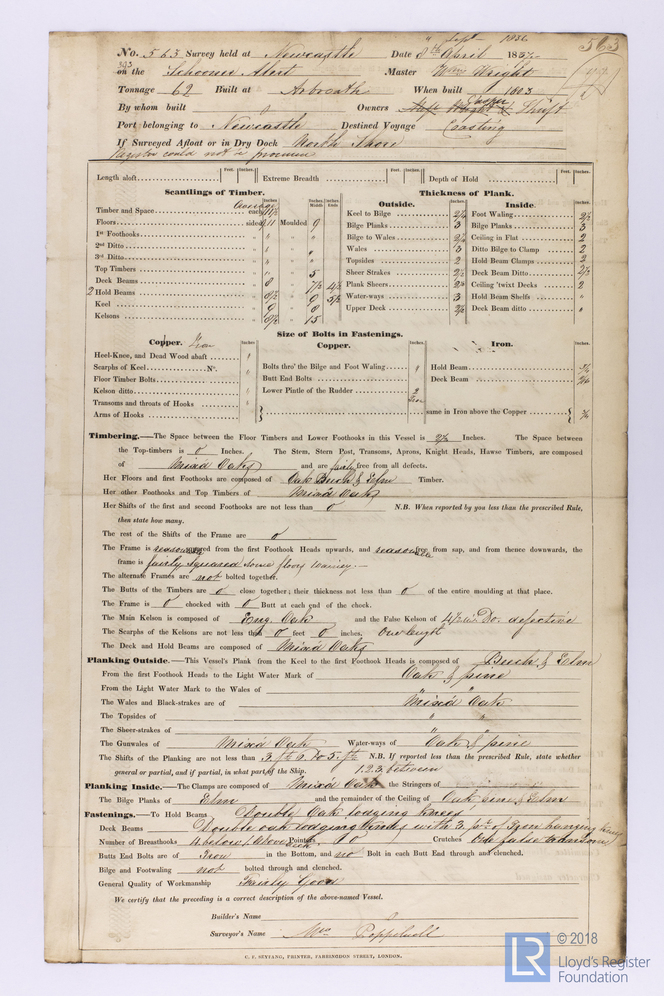 563
Septr 1836
No. 563 Survey held at Newcastle Date 8th April 183
on the Schooner Alert Master Wm Wright
Tonnage 62 Built at Arbroath When built 1803
By whom built Owners Shrift
Port belonging to Newcastle Destined Voyage Coasting
If Surveyed Afloat or in Dry Dock North Shore
Register could not be procured
Length aloft Feet. Inches. Extreme Breadth Feet. Inches. Depth of Hold Feet. Inches.
Scantlings of Timber.
Timber and Space each
Floors sided Moulded 9
1st Foothooks
2nd Ditto
3rd Ditto
Top Timbers 5
Deck Beams 8
2 Hold Beams
Keel 9
Kelsons 15
Thickness of Plank.
Outside. Inches.
Keel to Bilge 2½
Bilge Planks 3
Bilge to Wales 2½
Wales 3
Topsides 2
Sheer Strakes 2½
Plank Sheers 2½
Water-ways 3
Upper Deck 2½
Inside. Inches.
Foot Waling 2½
Bilge Planks 3
Ceiling in Flat 2
Ditto Bilge to Clamp 2
Hold Beam Clamps 2
Deck Beam Ditto 2½
Ceiling 'twixt Decks 2
Hold Beam Shelfs
Deck Beam ditto
Size of Bolts in Fastenings.
Copper. Iron
Heel-Knee, and Dead Wood abaft
Scarphs of Keel No.
Floor Timber Bolts
Kelson ditto
Transoms and throats of Hooks
Arms of Hooks
Copper. Inches.
Bolts thro' the Bilge and Foot Waling
Butt End Bolts
Lower Pintle of the Rudder 2
Iron
Iron. Inches.
Hold Beam
Deck Beam
same in Iron above the Copper
Timbering.—The Space between the Floor Timbers and Lower Foothooks in this Vessel is 2½ Inches. The Space between
the Top-timbers is 0 Inches. The Stem, Stern Post, Transoms, Aprons, Knight Heads, Hawse Timbers, are composed
of Mixed Oak and are fairly free from all defects.
Her Floors and first Foothooks are composed of Oak Birch & Elm Timber.
Her other Foothooks and Top Timbers of Mixed Oak
Her Shifts of the first and second Foothooks are not less than 0 N.B. When reported by you less than the prescribed Rule,
then state how many.
The rest of the Shifts of the Frame are 0
The Frame is squared from the first Foothook Heads upwards, and free from sap, and from thence downwards, the
frame is fairly squared some floors wainey.—
The alternate Frames are not bolted together.
The Butts of the Timbers are 0 close together; their thickness not less than 0 of the entire moulding at that place.
The Frame is 0 chocked with 0 Butt at each end of the chock.
The Main Kelson is composed of Eng. Oak and the False Kelson of Do. defective
The Scarphs of the Kelsons are not less than 0 feet 0 inches. One length
The Deck and Hold Beams are composed of Mixed Oak
Planking Outside.—This Vessel's Plank from the Keel to the first Foothook Heads is composed of Birch & Elm
From the first Foothook Heads to the Light Water Mark of Oak & pine
From the Light Water Mark to the Wales of " "
The Wales and Black-strakes are of Mixed Oak
The Topsides of " "
The Sheer-strakes of
The Gunwales of Mixed Oak Water-ways of Oak & pine
The Shifts of the Planking are not less than 3 ft 6 to 5 ft N.B. If reported less than the prescribed Rule, state whether
general or partial, and if partial, in what part of the Ship. 1.2.3. between
Planking Inside.—The Clamps are composed of Mixed Oak the Stringers of
The Bilge Planks of Elm and the remainder of the Ceiling of Oak pine & Elm
Fastenings.—To Hold Beams Double Oak lodging knees
Deck Beams Double oak lodging knees with 3 prs of Iron hanging knees
Number of Breasthooks 4 below 1 above deck Pointers 0 Crutches One false transom
Butts End Bolts are of Iron in the Bottom, and no Bolt in each Butt End through and clenched.
Bilge and Footwaling not bolted through and clenched.
General Quality of Workmanship Fairly Good
We certify that the preceding is a correct description of the above-named Vessel.
Builder's Name
Surveyor's Name Wm Popplewell
C. F. SEYFANG, PRINTER, FARRINGDON STREET, LONDON.
LR
© 2018
Lloyd's Register
Foundation